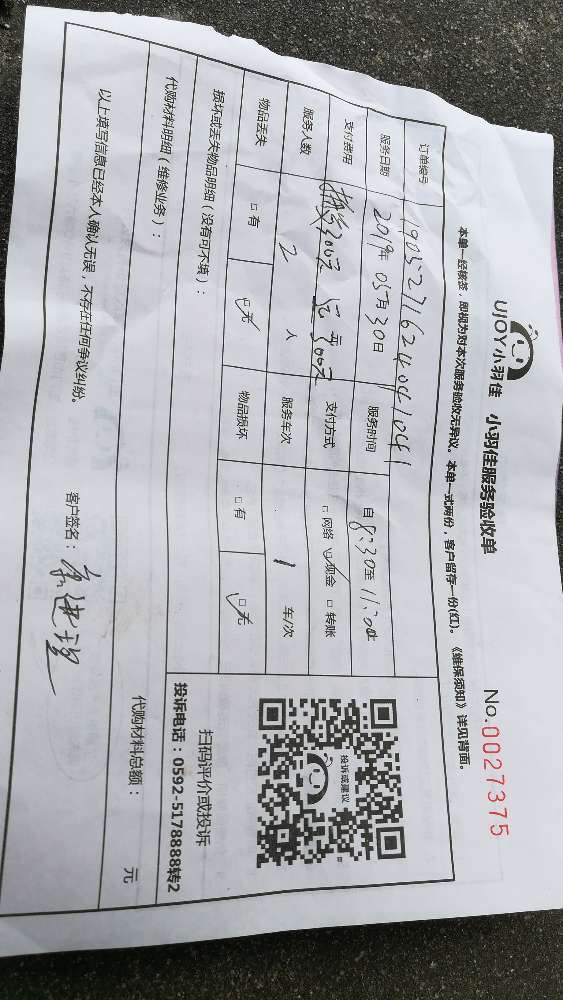 UJOY小羽佳 小羽佳服务验收单 No.0027375
本单一经核签，即视为对本次服务验收无异议。本单一式两份，客户留存一份(红)。《维保须知》详见背面。
订单编号 190527162404 1041
服务日期 2019年 05月30日 服务时间 自 8:30至 11:30止
支付费用 200元 300元 支付方式 □网络 ☑现金 □转账
服务人数 2 人 服务车次 1 车/次
物品丢失 □有 ☑无 物品损坏 □有 ☑无
损坏或丢失物品明细（没有可不填）：
代购材料明细（维修业务）：
代购材料总额： 元
以上填写信息已经本人确认无误，不存在任何争议纠纷。
客户签名：
投诉或建议
扫码评价或投诉
投诉电话：0592-5178888转2